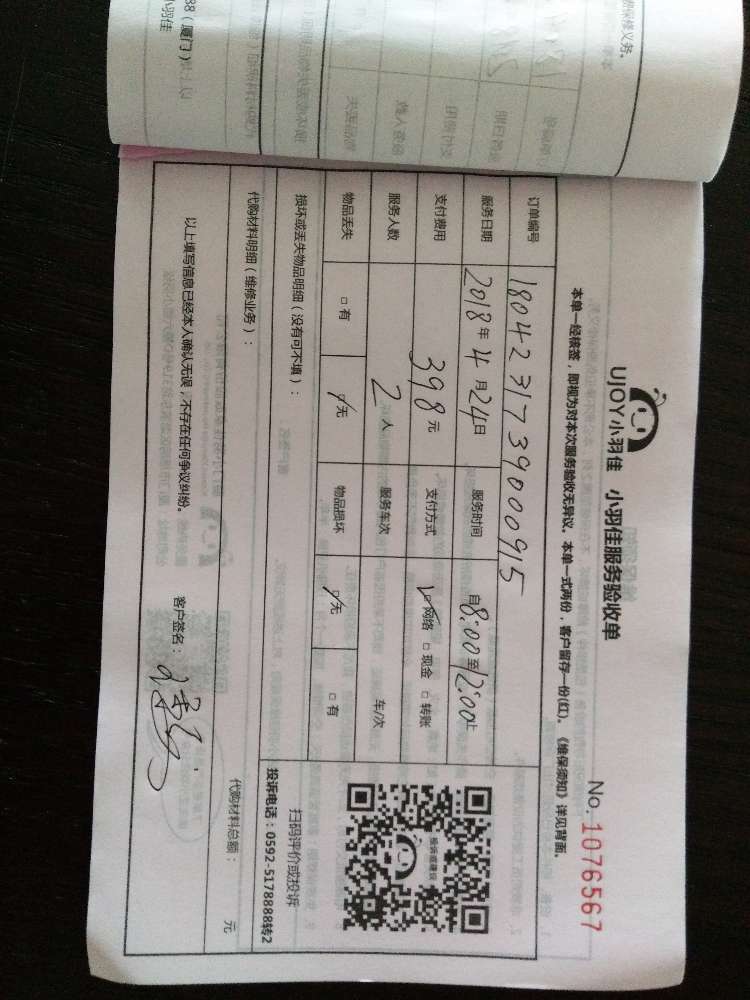 UJOY小羽佳 小羽佳服务验收单
No. 1076567
本单一经核签，即视为对本次服务验收无异议。本单一式两份，客户留存一份(红)。《维保须知》详见背面。
订单编号 1804231739000915
服务日期 2018年4月24日 服务时间 自8:00至12:00止
支付费用 398元 支付方式 ☑网络 □现金 □转账
服务人数 2人 服务车次 车/次
物品丢失 □有 ☑无 物品损坏 ☑无 □有
损坏或丢失物品明细（没有可不填）：
扫码评价或投诉
投诉电话：0592-5178888转2
代购材料明细（维修业务）：
代购材料总额： 元
以上填写信息已经本人确认无误，不存在任何争议纠纷。
客户签名：
保修义务。
88（厦门）
小羽佳